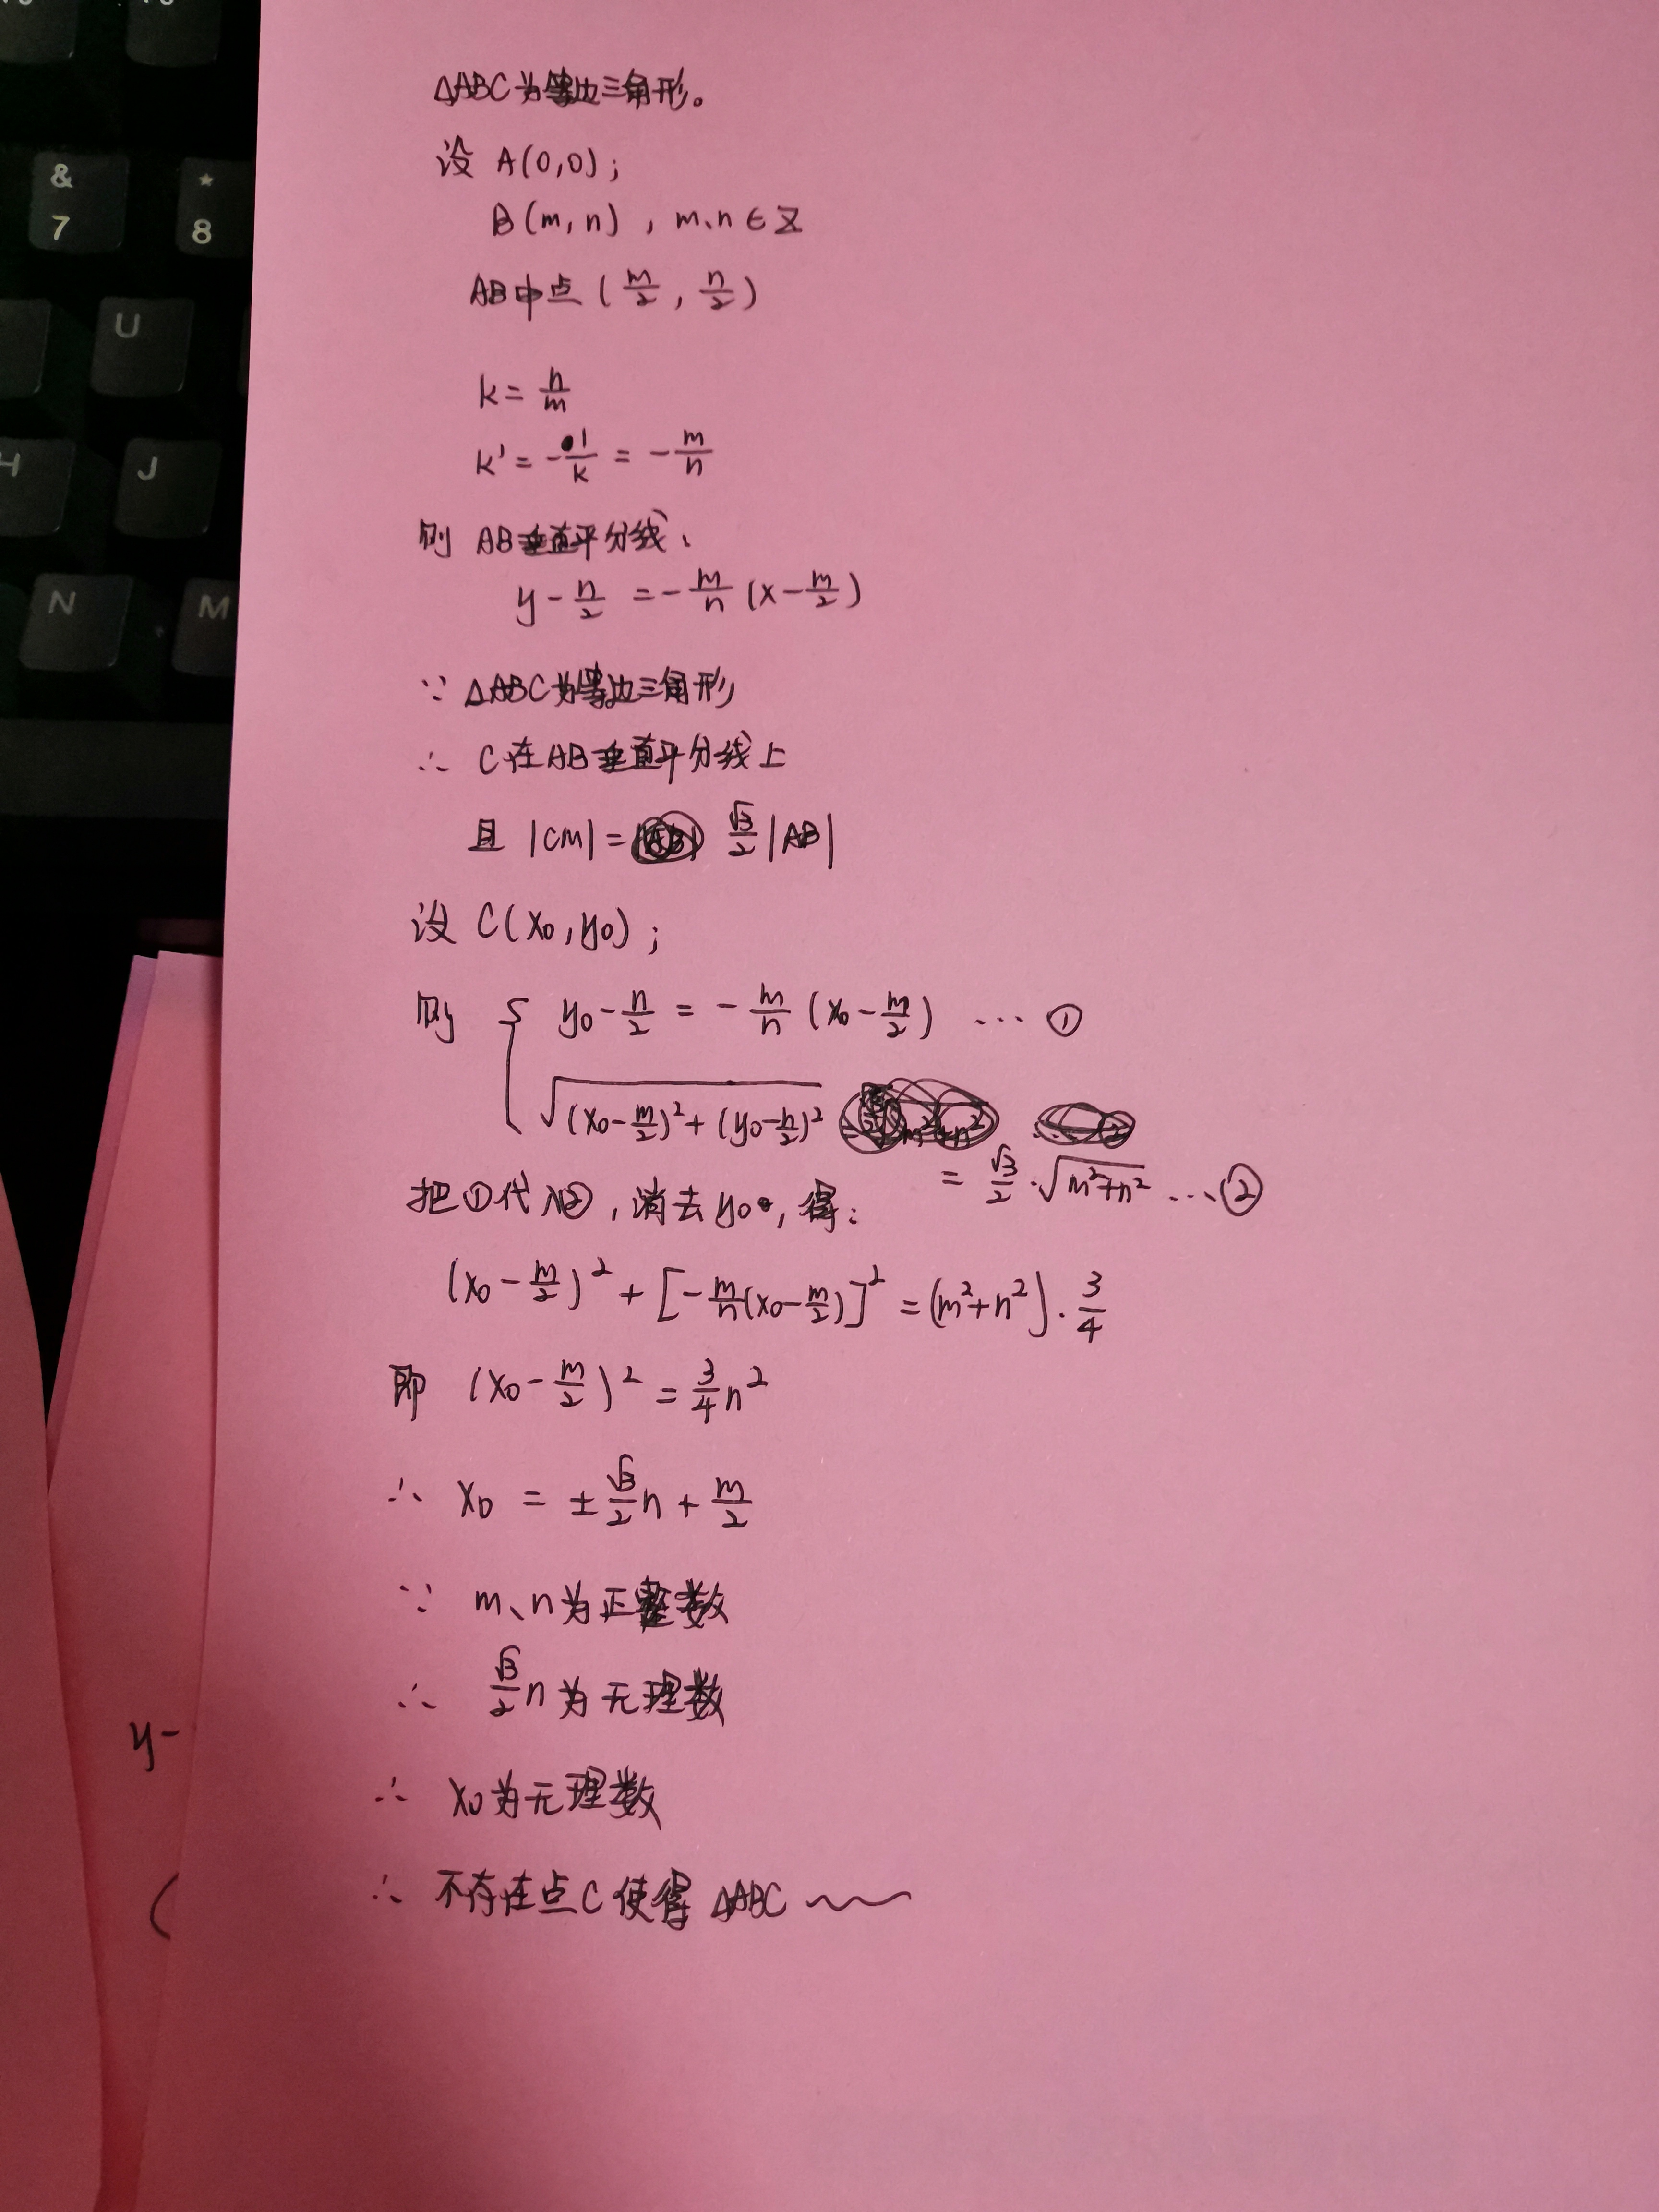 △ABC为等边三角形。
设 A(0,0);
B(m,n), m、n∈Z
AB中点(m/2, n/2)
k = n/m
k' = -1/k = -m/n
则 AB垂直平分线:
y - n/2 = -m/n (x - m/2)
∵ △ABC为等边三角形
∴ C在AB垂直平分线上
且 |CM| = √3/2 |AB|
设 C(x₀,y₀);
则 { y₀ - n/2 = -m/n (x₀ - m/2) … ①
√((x₀ - m/2)² + (y₀ - n/2)²)
= √3/2 · √(m²+n²) … ②
把①代入②,消去y₀,得:
(x₀ - m/2)² + [-m/n(x₀ - m/2)]² = (m²+n²) · 3/4
即 (x₀ - m/2)² = 3/4 n²
∴ x₀ = ± √3/2 n + m/2
∵ m、n为正整数
∴ √3/2 n 为无理数
∴ x₀为无理数
∴ 不存在点C使得 △ABC
&
7
*
8
U
H
J
N
M
y-
(